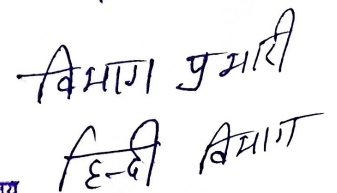 विभाग प्रभारी
हिन्दी विभाग